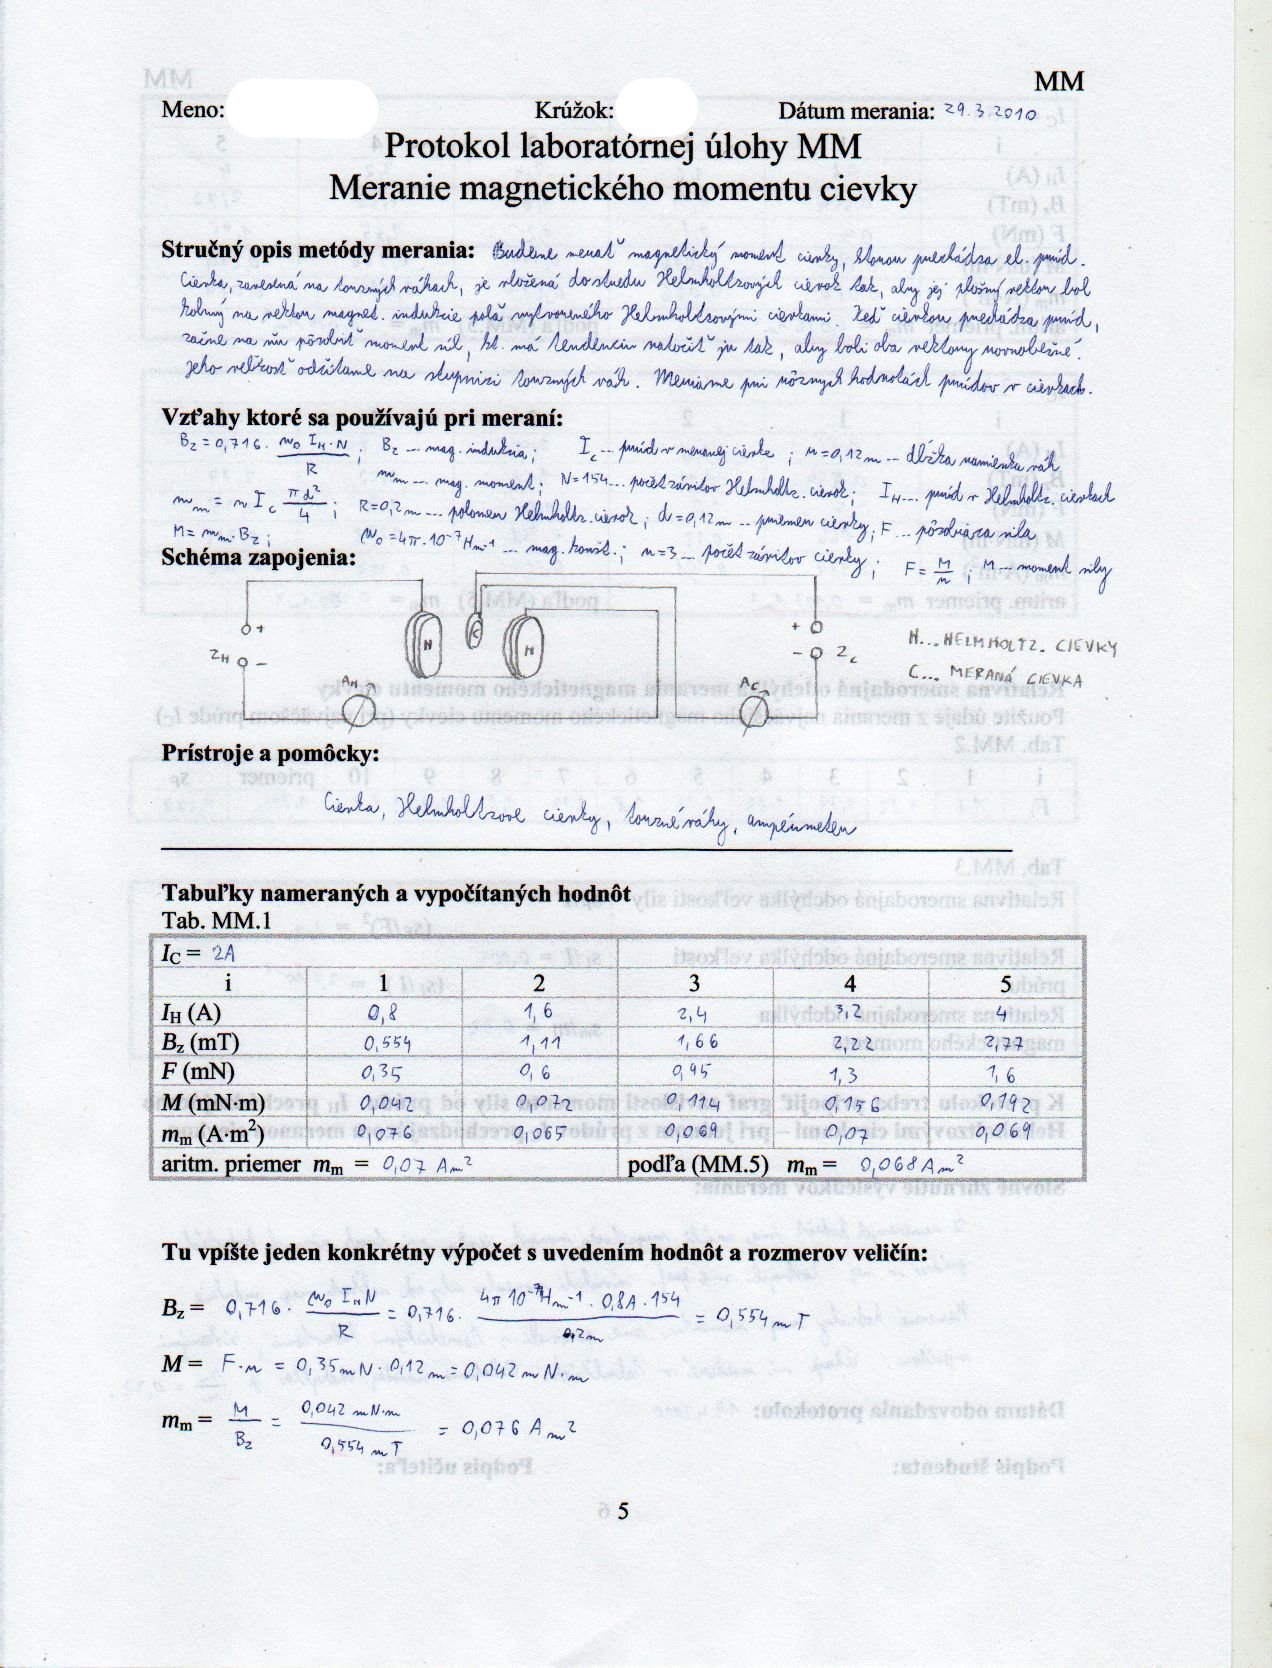 MM
Meno: Krúžok: Dátum merania: 29.3.2010
Protokol laboratórnej úlohy MM
Meranie magnetického momentu cievky
Stručný opis metódy merania: Budeme merať magnetický moment cievky, ktorou prechádza el. prúd.
Cievka, zavesená na torzných váhach, je vložená do stredu Helmholtzových cievok tak, aby jej plošný vektor bol
kolmý na vektor magnet. indukcie poľa vytvoreného Helmholtzovými cievkami. Keď cievkou prechádza prúd,
začne na ňu pôsobiť moment síl, kt. má tendenciu natočiť ju tak, aby boli oba vektory rovnobežné.
Jeho veľkosť odčítame na stupnici torzných váh. Meriame pri rôznych hodnotách prúdov v cievkach.
Vzťahy ktoré sa používajú pri meraní:
Bz = 0,716 · μ0 IH·N / R ; Bz ... mag. indukcia ; Ic ... prúd v meranej cievke ; r = 0,12m ... dĺžka ramienka váh
mm ... mag. moment ; N=154 ... počet závitov Helmholtz. cievok ; IH ... prúd v Helmholtz. cievkach
mm = n Ic πd²/4 ; R=0,2m ... polomer Helmholtz. cievok ; d=0,12m ... priemer cievky, F ... pôsobiaca sila
M = mm·Bz ; μ0=4π·10⁻⁷Hm⁻¹ ... mag. konšt. ; n=3 ... počet závitov cievky ; F = M/r ; M ... moment sily
Schéma zapojenia:
+ H C H +
ZH - - Zc
AH Ac
H...HELMHOLTZ. CIEVKY
C... MERANÁ CIEVKA
Prístroje a pomôcky:
Cievka, Helmholtzove cievky, torzné váhy, ampérmeter
Tabuľky nameraných a vypočítaných hodnôt
Tab. MM.1
IC = 2A
i 1 2 3 4 5
IH (A) 0,8 1,6 2,4 3,2 4
Bz (mT) 0,554 1,11 1,66 2,22 2,77
F (mN) 0,35 0,6 0,95 1,3 1,6
M (mN·m) 0,042 0,072 0,114 0,156 0,192
mm (A·m²) 0,076 0,065 0,069 0,07 0,069
aritm. priemer mm = 0,07 Am² podľa (MM.5) mm = 0,068 Am²
Tu vpíšte jeden konkrétny výpočet s uvedením hodnôt a rozmerov veličín:
Bz = 0,716 · μ0 IH N / R = 0,716 · 4π 10⁻⁷Hm⁻¹ · 0,8A · 154 / 0,2m = 0,554 mT
M = F·r = 0,35mN · 0,12m = 0,042 mN·m
mm = M / Bz = 0,042 mN·m / 0,554 mT = 0,076 Am²
5